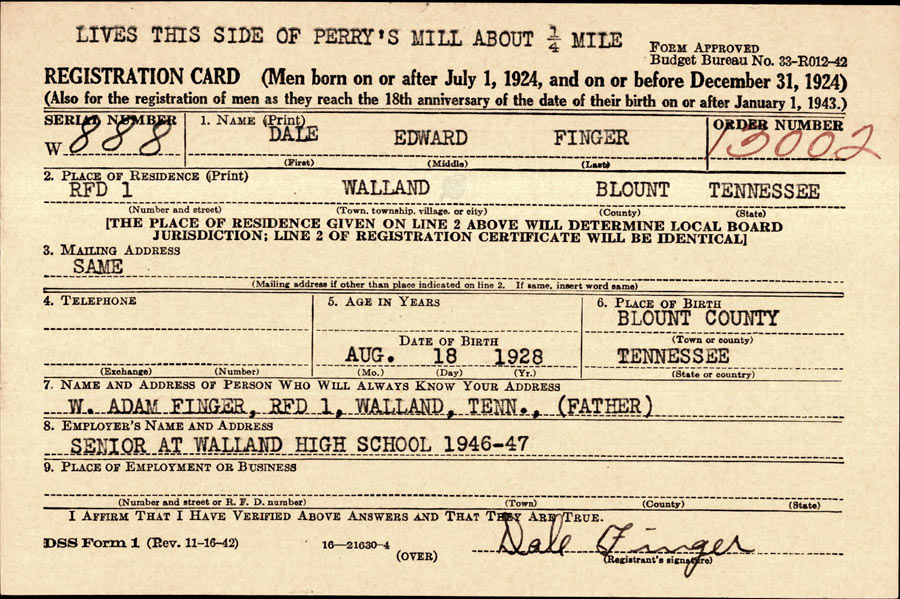 LIVES THIS SIDE OF PERRY'S MILL ABOUT ¼ MILE
FORM APPROVED
Budget Bureau No. 33-R012-42
REGISTRATION CARD (Men born on or after July 1, 1924, and on or before December 31, 1924)
(Also for the registration of men as they reach the 18th anniversary of the date of their birth on or after January 1, 1943.)
SERIAL NUMBER 1. NAME (Print) ORDER NUMBER
W 888 DALE EDWARD FINGER 13002
(First) (Middle) (Last)
2. PLACE OF RESIDENCE (Print)
RFD 1 WALLAND BLOUNT TENNESSEE
(Number and street) (Town, township, village, or city) (County) (State)
[THE PLACE OF RESIDENCE GIVEN ON LINE 2 ABOVE WILL DETERMINE LOCAL BOARD
JURISDICTION; LINE 2 OF REGISTRATION CERTIFICATE WILL BE IDENTICAL]
3. MAILING ADDRESS
SAME
(Mailing address if other than place indicated on line 2. If same, insert word same)
4. TELEPHONE 5. AGE IN YEARS 6. PLACE OF BIRTH
BLOUNT COUNTY
DATE OF BIRTH (Town or county)
AUG. 18 1928 TENNESSEE
(Exchange) (Number) (Mo.) (Day) (Yr.) (State or country)
7. NAME AND ADDRESS OF PERSON WHO WILL ALWAYS KNOW YOUR ADDRESS
W. ADAM FINGER, RFD 1, WALLAND, TENN., (FATHER)
8. EMPLOYER'S NAME AND ADDRESS
SENIOR AT WALLAND HIGH SCHOOL 1946-47
9. PLACE OF EMPLOYMENT OR BUSINESS
(Number and street or R. F. D. number) (Town) (County) (State)
I AFFIRM THAT I HAVE VERIFIED ABOVE ANSWERS AND THAT THEY ARE TRUE.
DSS Form 1 (Rev. 11-16-42) 16—21630-4 Dale Finger
(OVER) (Registrant's signature)